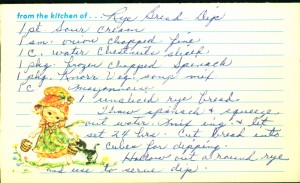 from the kitchen of... Rye Bread Dip
1 pt sour cream
1 sm. onion chopped fine
1 c. water chestnuts sliced
1 pkg. frozen chopped spinach
1 pkg. Knorr Veg. soup mix
1 c mayonnaise
1 unsliced rye bread
Thaw spinach & squeeze
out water. Mix ing. & let
set 24 hrs. Cut bread into
cubes for dipping.
Hollow out a round rye
and use to serve dip.